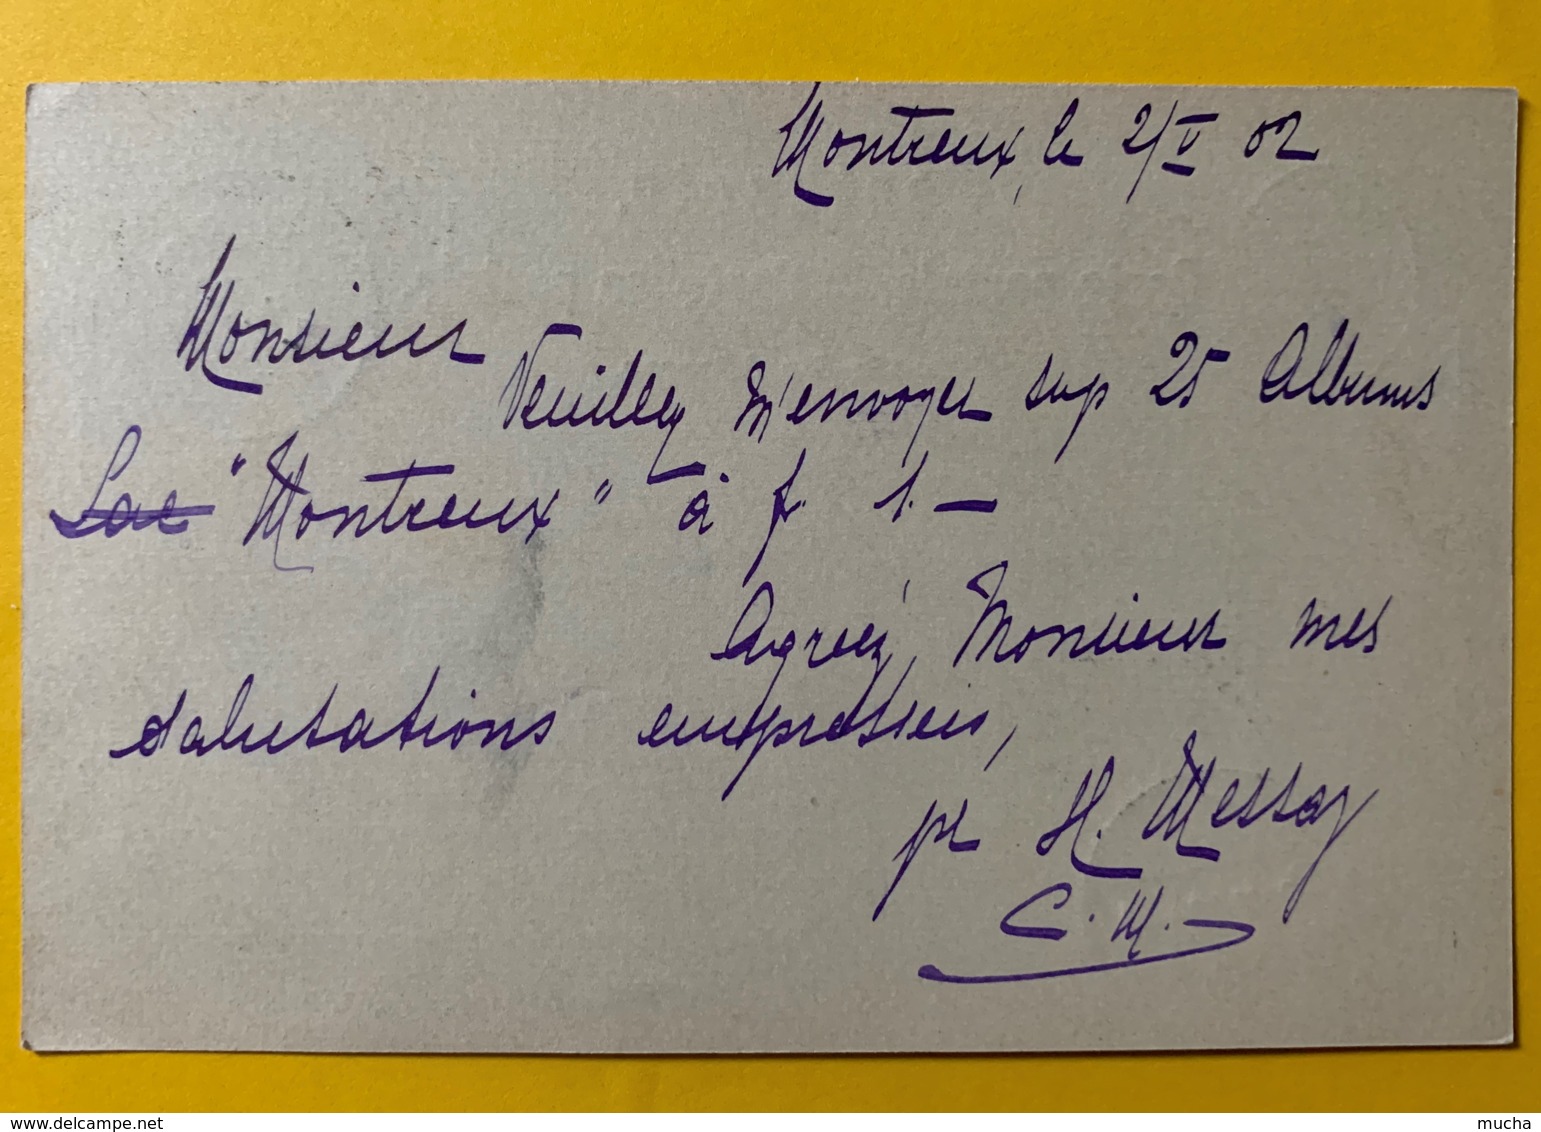 Montreux, le 2/V 02
Monsieur
Veuillez m'envoyer sup 25 Albums
Lac "Montreux" à f. 1.—
Agréez, Monsieur mes
salutations empressées,
pr H. Messaz
C. M.
www.delcampe.net
mucha